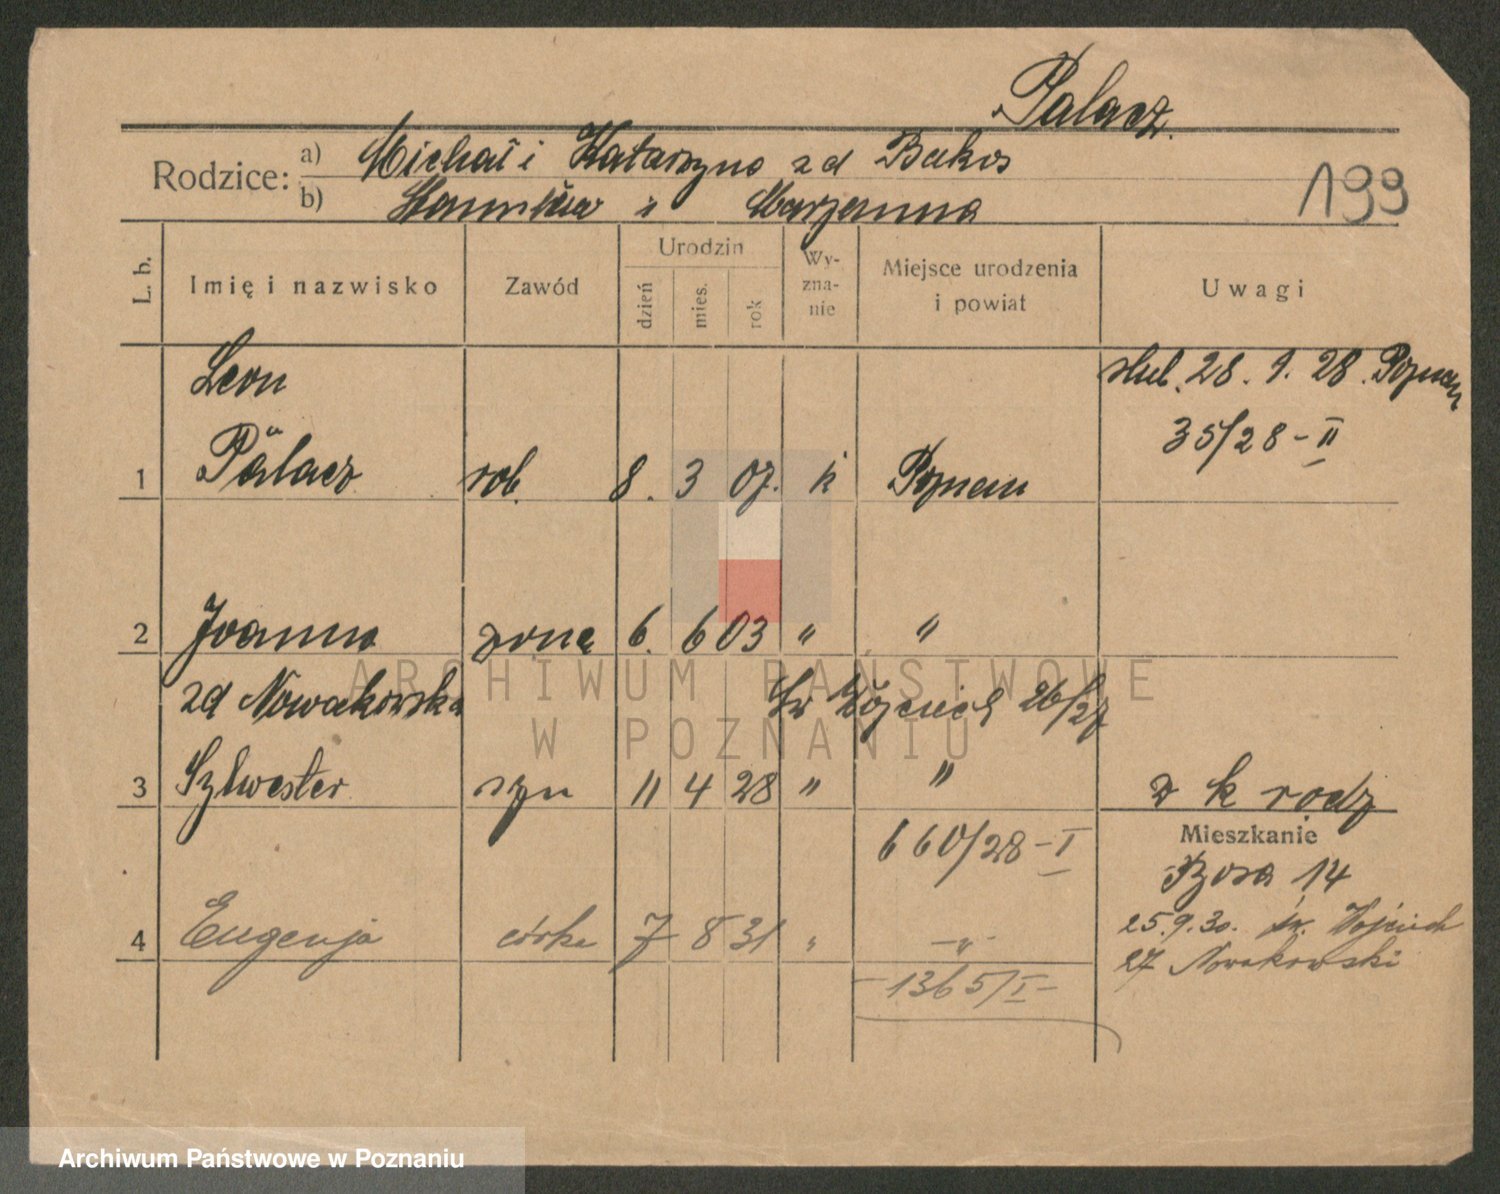 Palacz.
Rodzice: a) Michał i Katarzyna zd Bakos
b) Stanisław i Marzanna
199
L. b. Imię i nazwisko Zawód Urodzin dzień mies. rok Wy-zna-nie Miejsce urodzenia i powiat Uwagi
Leon ślub. 28. 1. 28. Poznań
35/28-II
1 Palacz rob. 8. 3 07. k Poznań
2 Joanna żona 6. 6 03 " "
zd Nowakowska Św Wojciech 26/27
3 Sylwester syn 11 4 28 " " z k rodz
660/28-I Mieszkanie
14
25.9.30. św. Wojciech
4 Eugenja córka 7 8 31 " -"- 27 Nowakowski
-1365/I-
ARCHIWUM PAŃSTWOWE
W POZNANIU
Archiwum Państwowe w Poznaniu